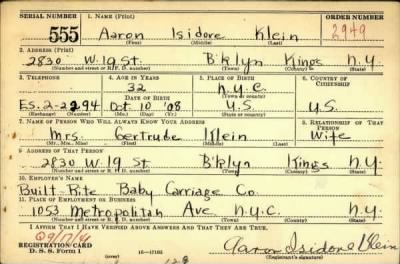 SERIAL NUMBER 1. NAME (Print) ORDER NUMBER
555 Aaron Isidore Klein 2949
(First) (Middle) (Last)
2. ADDRESS (Print)
2830 W. 19 St. B'klyn Kings N.Y.
(Number and street or R. F. D. number) (Town) (County) (State)
3. TELEPHONE 4. AGE IN YEARS 5. PLACE OF BIRTH 6. COUNTRY OF CITIZENSHIP
32 N.Y.C.
DATE OF BIRTH (Town or county)
ES. 2-2294 Oct 10 '08 U.S. U.S.
(Exchange) (Number) (Mo.) (Day) (Yr.) (State or country)
7. NAME OF PERSON WHO WILL ALWAYS KNOW YOUR ADDRESS 8. RELATIONSHIP OF THAT PERSON
Mrs. Gertrude Klein Wife
(Mr., Mrs., Miss) (First) (Middle) (Last)
9. ADDRESS OF THAT PERSON
2830 W. 19 St. B'klyn Kings N.Y.
(Number and street or R. F. D. number) (Town) (County) (State)
10. EMPLOYER'S NAME
Built-Rite Baby Carriage Co.
11. PLACE OF EMPLOYMENT OR BUSINESS
1053 Metropolitan Ave N.Y.C. N.Y.
(Number and street or R. F. D. number) (Town) (County) (State)
I AFFIRM THAT I HAVE VERIFIED ABOVE ANSWERS AND THAT THEY ARE TRUE.
REGISTRATION CARD
D. S. S. Form 1 (over) Aaron Isidore Klein
(Registrant's signature)